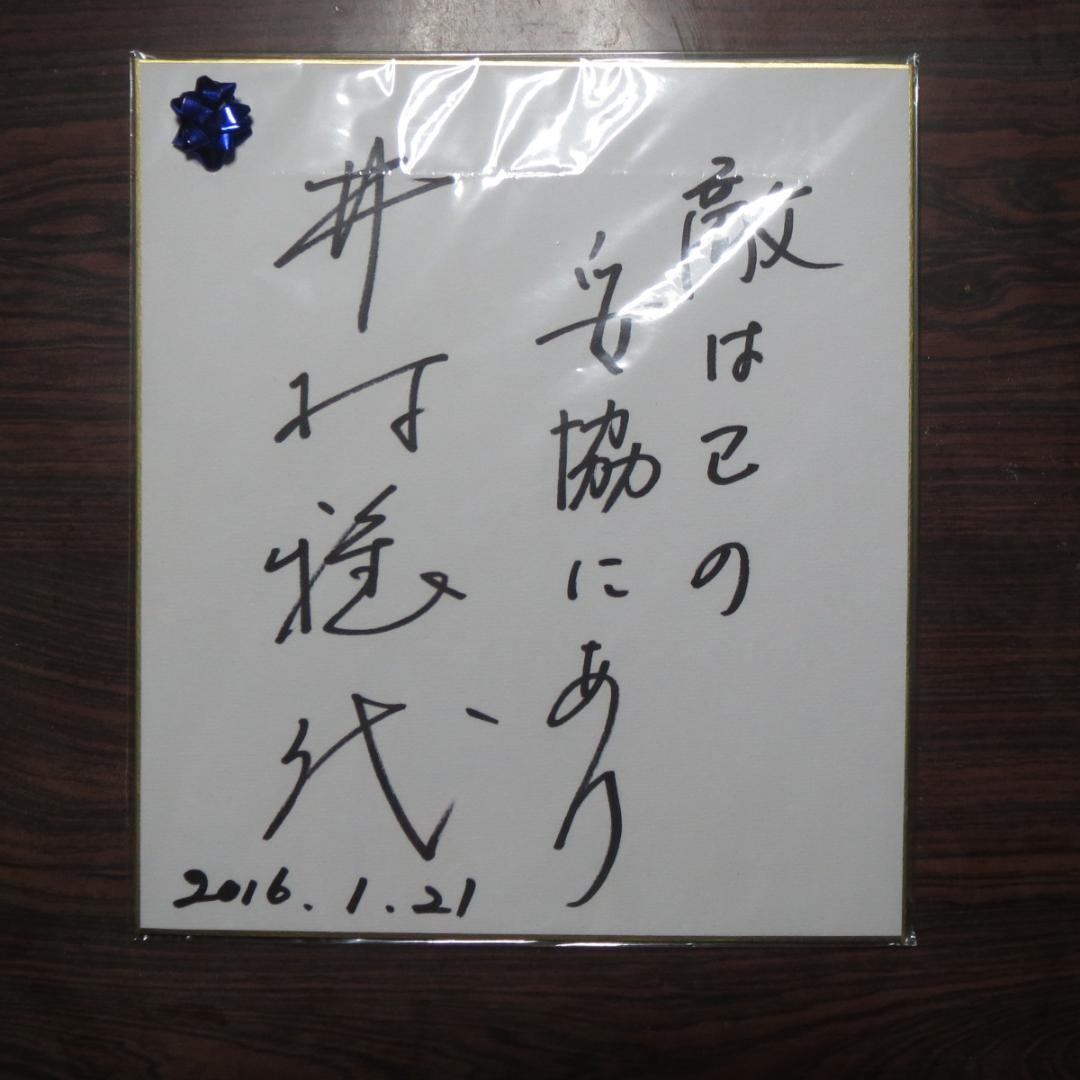 敵は己の
妥協にあり
井村雅代
2016.1.21